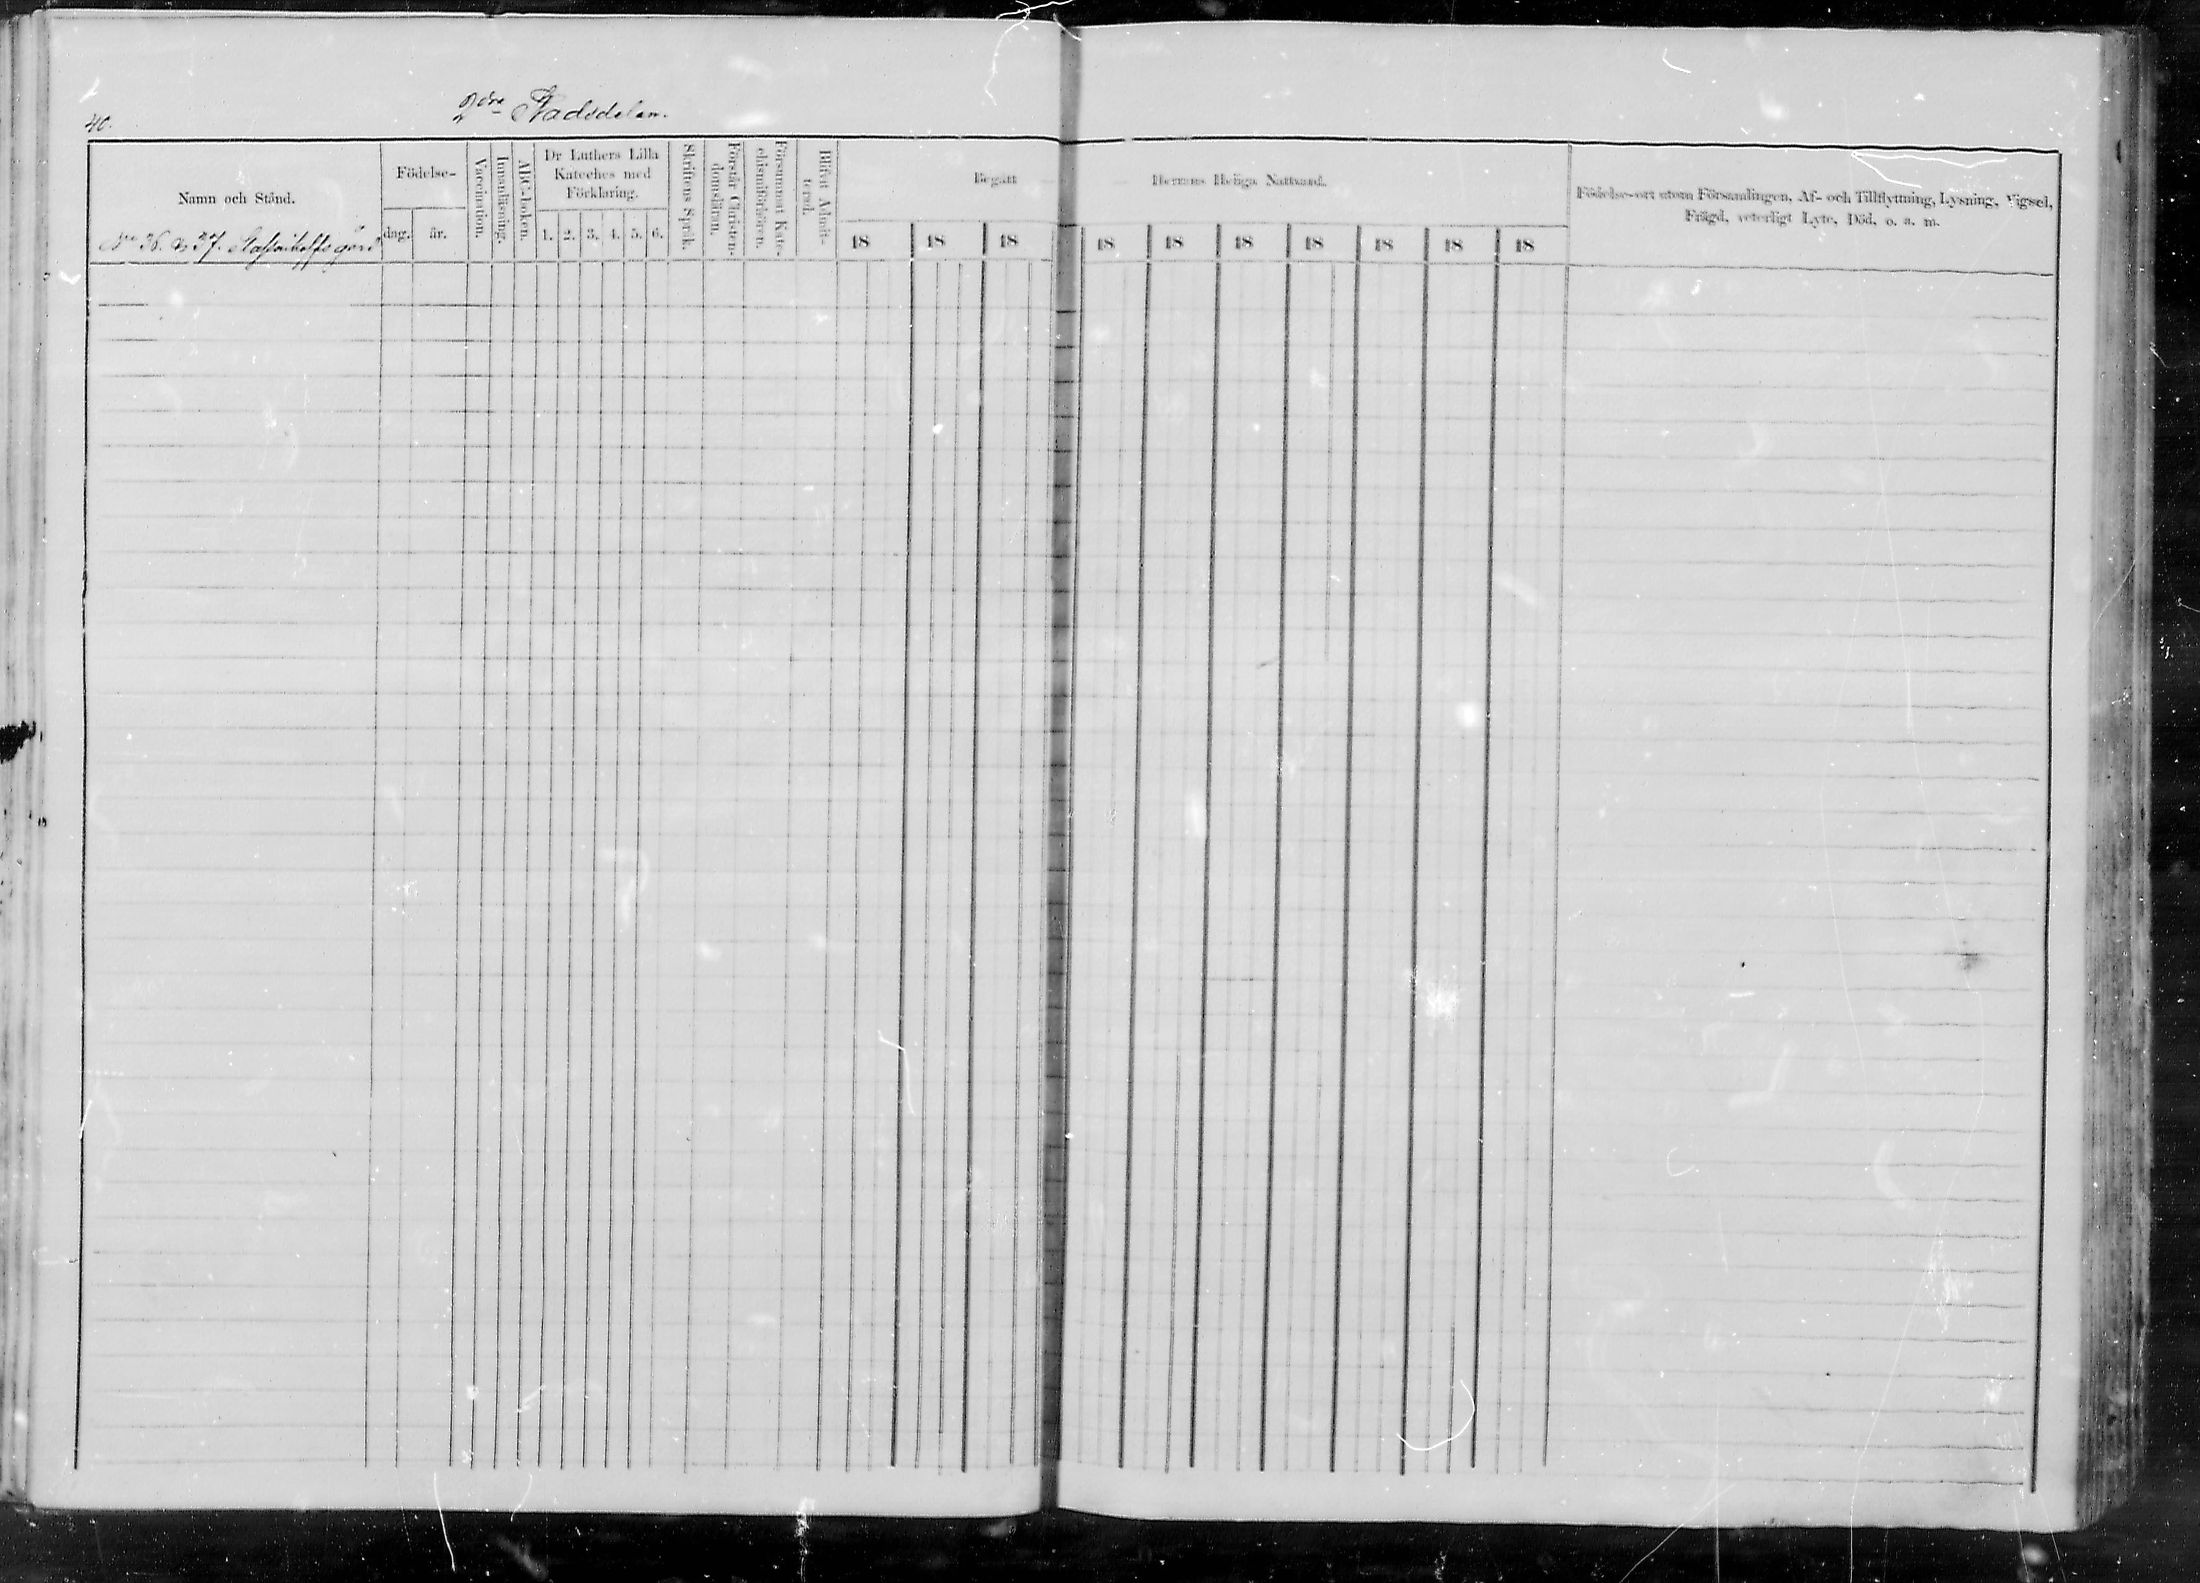 40.
2dra Stadsdelen.
Namn och Stånd.
No 36. & 37.
Födelse-
dag.
år.
Vaccination.
Innanläsning.
ABC-boken.
Dr Luthers Lilla
Kateches med
Förklaring.
1. 2. 3. 4. 5. 6.
Skriftens Språk.
Förstår Christen-
domsläran.
Försummat Kate-
chismiförhören.
Blifvit Admit-
terad.
Begått Herrans Heliga Nattvard.
18 18 18 18 18 18 18 18 18 18
Födelse-ort utom Församlingen, Af- och Tillflyttning, Lysning, Vigsel,
Frägd, veterligt Lyte, Död, o. s. m.